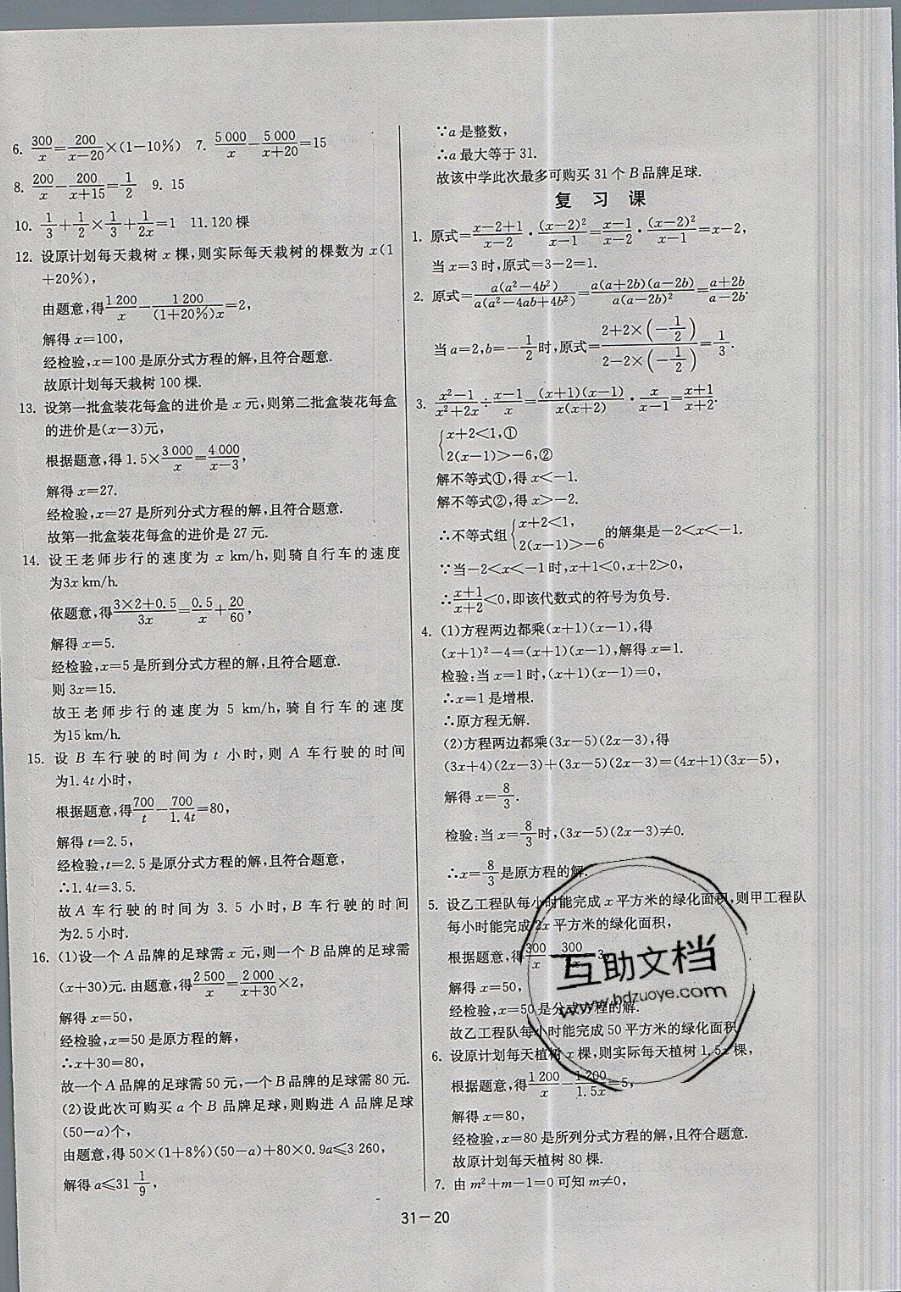 6. 300/x=200/(x-20)×(1-10%) 7. 5 000/x-5 000/(x+20)=15
8. 200/x-200/(x+15)=1/2 9. 15
10. 1/3+1/2×1/3+1/(2x)=1 11. 120棵
12. 设原计划每天栽树 x 棵,则实际每天栽树的棵数为 x(1
+20%),
由题意,得1 200/x-1 200/((1+20%)x)=2,
解得 x=100,
经检验,x=100 是原分式方程的解,且符合题意.
故原计划每天栽树 100 棵.
13. 设第一批盒装花每盒的进价是 x 元,则第二批盒装花每盒
的进价是(x-3)元,
根据题意,得 1.5×3 000/x=4 000/(x-3),
解得 x=27.
经检验,x=27 是所列分式方程的解,且符合题意.
故第一批盒装花每盒的进价是 27 元.
14. 设王老师步行的速度为 x km/h,则骑自行车的速度
为3x km/h.
依题意,得(3×2+0.5)/(3x)=0.5/x+20/60,
解得 x=5.
经检验,x=5 是所到分式方程的解,且符合题意.
则 3x=15.
故王老师步行的速度为 5 km/h,骑自行车的速度
为15 km/h.
15. 设 B 车行驶的时间为 t 小时,则 A 车行驶的时间
为1.4t小时,
根据题意,得700/t-700/(1.4t)=80,
解得 t=2.5,
经检验,t=2.5 是原分式方程的解,且符合题意,
∴1.4t=3.5.
故 A 车行驶的时间为 3.5 小时,B 车行驶的时间
为2.5 小时.
16. (1)设一个 A 品牌的足球需 x 元,则一个 B 品牌的足球需
(x+30)元.由题意,得2 500/x=2 000/(x+30)×2,
解得 x=50,
经检验,x=50 是原方程的解,
∴x+30=80,
故一个 A 品牌的足球需 50 元,一个 B 品牌的足球需 80 元.
(2)设此次可购买 a 个 B 品牌足球,则购进 A 品牌足球
(50-a)个,
由题意,得 50×(1+8%)(50-a)+80×0.9a≤3 260,
解得 a≤31 1/9,
∵a 是整数,
∴a 最大等于 31.
故该中学此次最多可购买 31 个 B 品牌足球.
复 习 课
1. 原式=(x-2+1)/(x-2)·(x-2)²/(x-1)=(x-1)/(x-2)·(x-2)²/(x-1)=x-2,
当 x=3 时,原式=3-2=1.
2. 原式=a(a²-4b²)/(a(a²-4ab+4b²))=a(a+2b)(a-2b)/(a(a-2b)²)=(a+2b)/(a-2b).
当 a=2,b=-1/2时,原式=(2+2×(-1/2))/(2-2×(-1/2))=1/3.
3. (x²-1)/(x²+2x)÷(x-1)/x=(x+1)(x-1)/(x(x+2))·x/(x-1)=(x+1)/(x+2).
{x+2<1,①
2(x-1)>-6,②
解不等式①,得 x<-1.
解不等式②,得 x>-2.
∴不等式组{x+2<1, 2(x-1)>-6的解集是-2<x<-1.
∵当-2<x<-1 时,x+1<0,x+2>0,
∴(x+1)/(x+2)<0,即该代数式的符号为负号.
4. (1)方程两边都乘(x+1)(x-1),得
(x+1)²-4=(x+1)(x-1),解得 x=1.
检验:当 x=1 时,(x+1)(x-1)=0,
∴x=1 是增根.
∴原方程无解.
(2)方程两边都乘(3x-5)(2x-3),得
(3x+4)(2x-3)+(3x-5)(2x-3)=(4x+1)(3x-5),
解得 x=8/3.
检验:当 x=8/3时,(3x-5)(2x-3)≠0.
∴x=8/3是原方程的解.
5. 设乙工程队每小时能完成 x 平方米的绿化面积,则甲工程队
每小时能完成 2x 平方米的绿化面积,
根据题意,得300/x-300/ 3,
解得 x=50,
经检验,x=50 是分式方程的解.
故乙工程队每小时能完成 50 平方米的绿化面积
6. 设原计划每天植树 x 棵,则实际每天植树 1.5x 棵,
根据题意,得1 200/x-1 200/(1.5x)=5,
解得 x=80,
经检验,x=80 是所列分式方程的解,且符合题意.
故原计划每天植树 80 棵.
7. 由 m²+m-1=0 可知 m≠0,
31-20
互助文档
www.hdzuoye.com